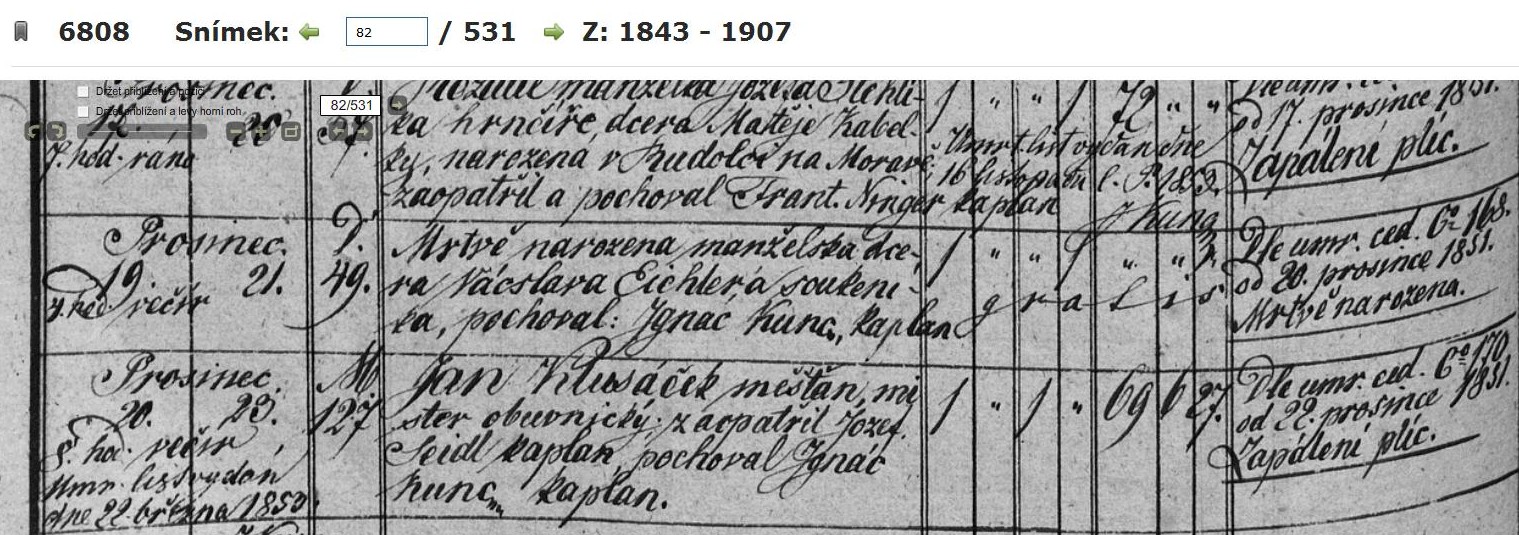 6808 Snímek: 82 / 531 Z: 1843 - 1907
Držet přiblížení a pozici
Držet přiblížení a levý horní roh
82/531
Prosinec.
20
7. hod. ráno
manželka Jozefa Sichli-
ka hrnčíře, dcera Matěje Kabel-
ky, narozená v na Moravě
zaopatřil a pochoval Frant. Ninger kaplan
1 " " 1 72 " "
Úmrt. list vydán dne
16 listopadu l. P. 1853.
J Kunz
od 17. prosince 1851.
Zapálení plic.
Prosinec.
19. 21.
hod večír
D.
49.
Mrtvě narozena manželska dce-
ra Vácslava Eichlera soukeni-
ka, pochoval: Ignác Kunc, kaplan
1 " " 1 " " "
gratis
Dle umr. ced. Co 168.
od 20. prosince 1851.
Mrtvě narozena.
Prosinec.
20. 23.
hod. večír
Umr. list vydán
dne 22. března 1853.
M
127
Jan Klusáček měšťan, mi
ster obuvnický, zaopatřil Jozef
Seidl kaplan, pochoval Ignác
Kunc, kaplan.
1 " 1 " 69 6 27.
Dle umr. ced. Co 170
od 22. prosince 1851.
Zapálení plic.